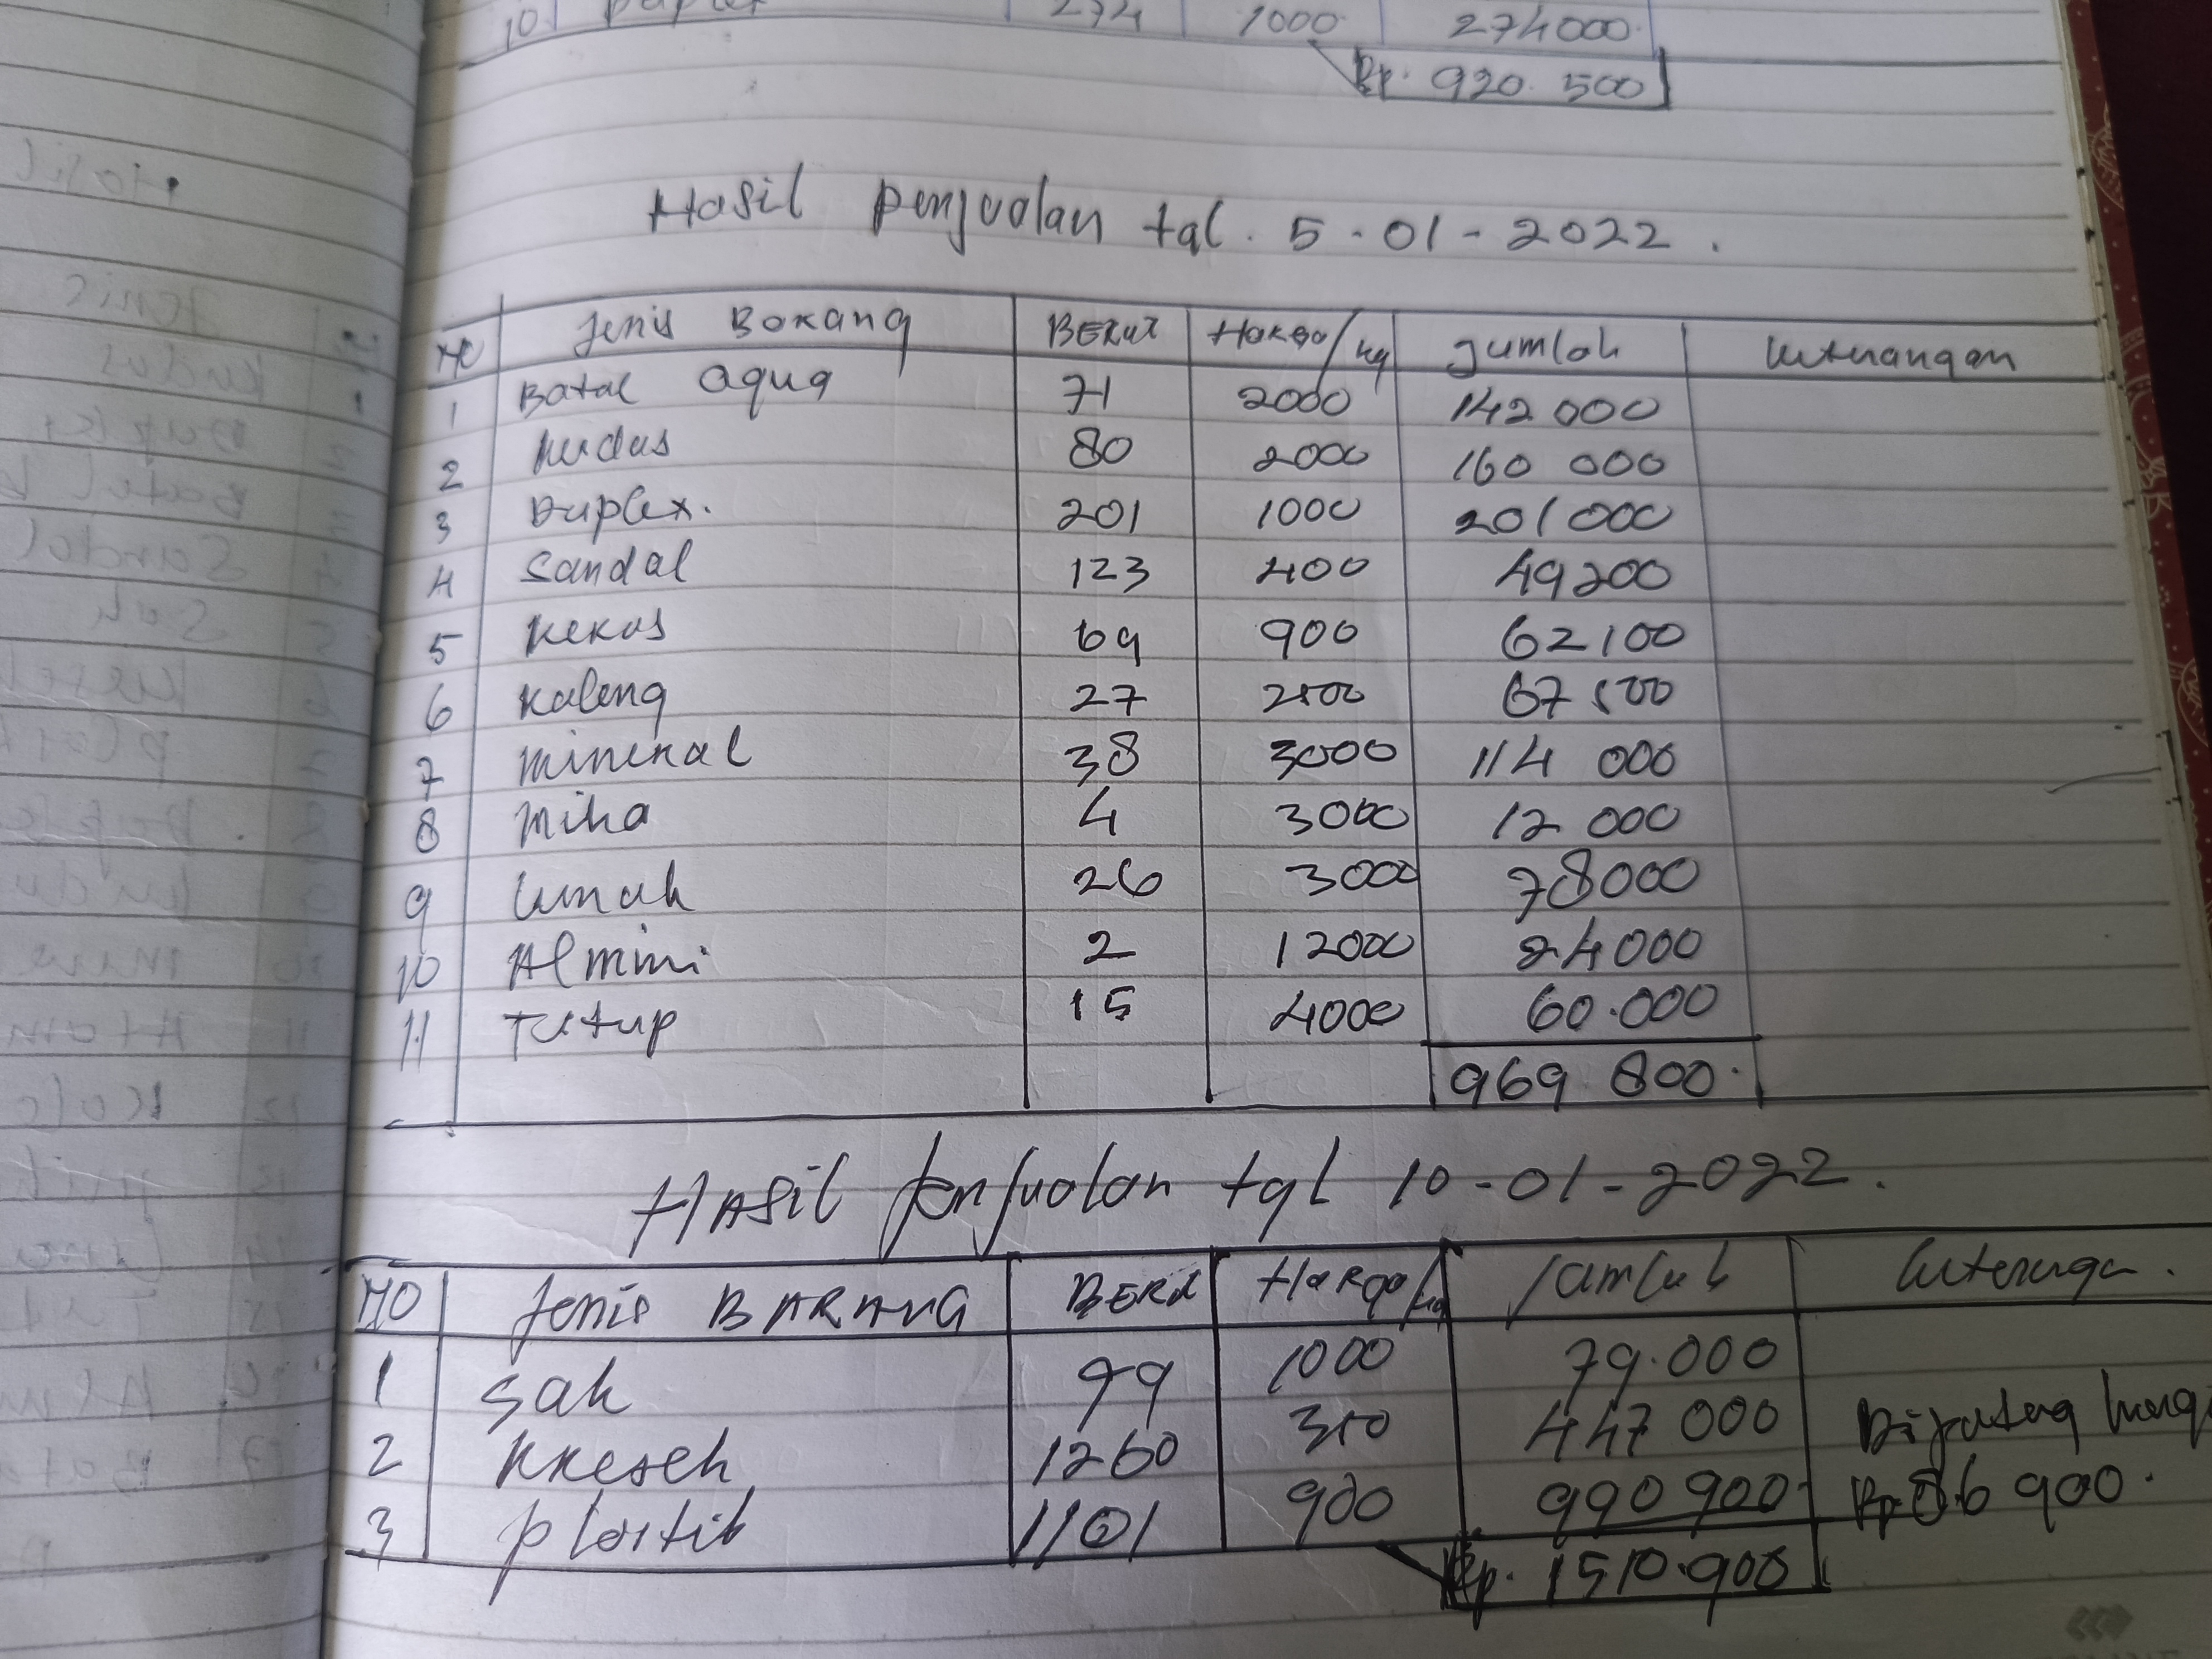 10 Duplex 274 1000 274000
Rp. 920.500
Hasil penjualan tgl. 5-01-2022.
NO Jenis Barang BERAT Harga/kg Jumlah keterangan
1 Botol aqua 71 2000 142 000
2 kudus 80 2000 160 000
3 Duplex. 201 1000 201000
4 Sandal 123 400 49200
5 keras 69 900 62100
6 kaleng 27 2500 67500
7 mineral 38 3000 114 000
8 mika 4 3000 12 000
9 lunak 26 3000 78000
10 Almini 2 12000 24000
11 Tutup 15 4000 60.000
969.800.
HASil penjualan tgl 10-01-2022.
NO Jenis BARANG BERAT Harga/kg Jumlah
1 Sak 79 1000 79.000
2 kresek 1260 350 447 000
3 plastik 1101 900 990 900 Rp. 900.
Rp. 1510.900